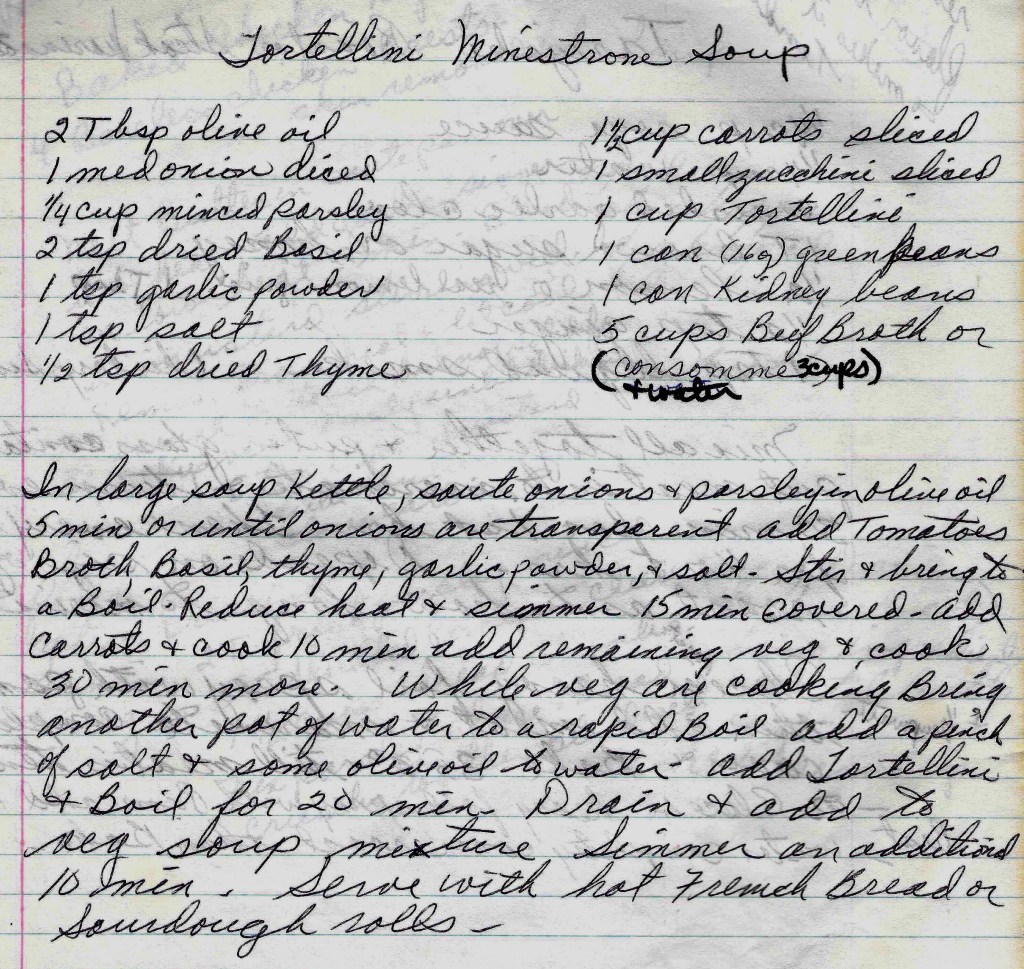 Tortellini Minestrone Soup
2 Tbsp olive oil
1 med onion diced
1/4 cup minced parsley
2 tsp dried Basil
1 tsp garlic powder
1 tsp salt
1/2 tsp dried Thyme
1 1/2 cup carrots sliced
1 small zucchini sliced
1 cup Tortellini
1 can (16 oz) green beans
1 can Kidney beans
5 cups Beef Broth or
(consomme 3 cups)
& water
In large soup Kettle, saute onions & parsley in olive oil
5 min or until onions are transparent add Tomatoes
Broth, Basil, thyme, garlic powder, & salt - Stir & bring to
a Boil. Reduce heat & simmer 15 min covered - add
Carrots & cook 10 min add remaining veg & cook
30 min more. While veg are cooking Bring
another pot of water to a rapid Boil add a pinch
of salt & some olive oil to water - add Tortellini
& Boil for 20 min. Drain & add to
veg soup mixture Simmer an additional
10 min. Serve with hot French Bread or
Sourdough rolls -